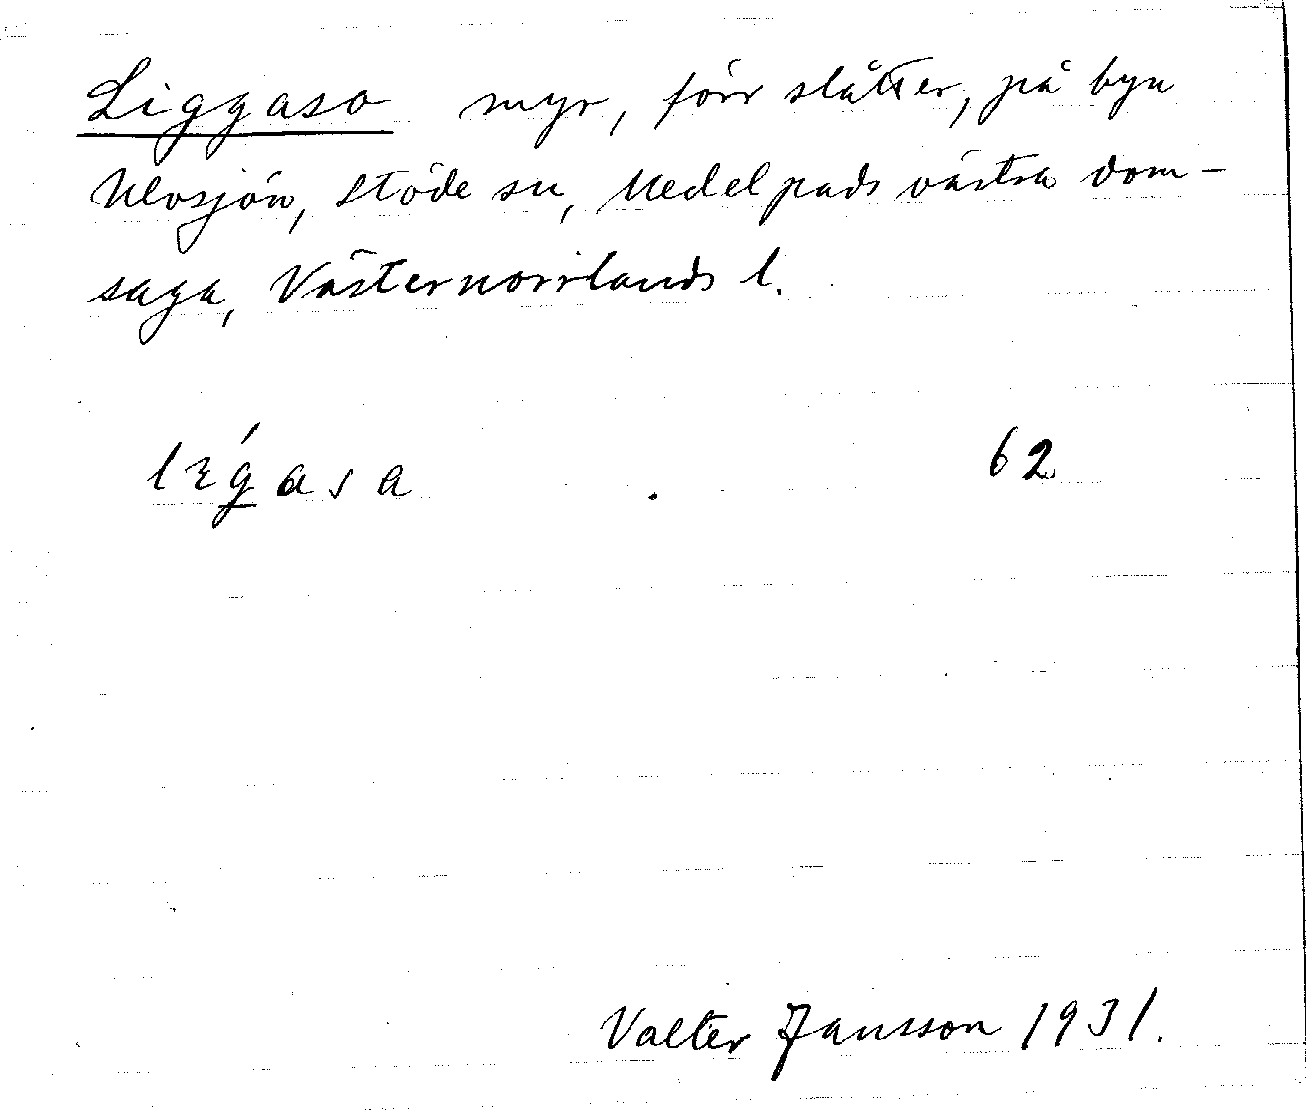 Liggaso myr, förr slåtter, på byn
Ulvsjön, Stöde sn, Medelpads västra dom-
saga, Västernorrlands l.
62
Valter Jansson 1931.